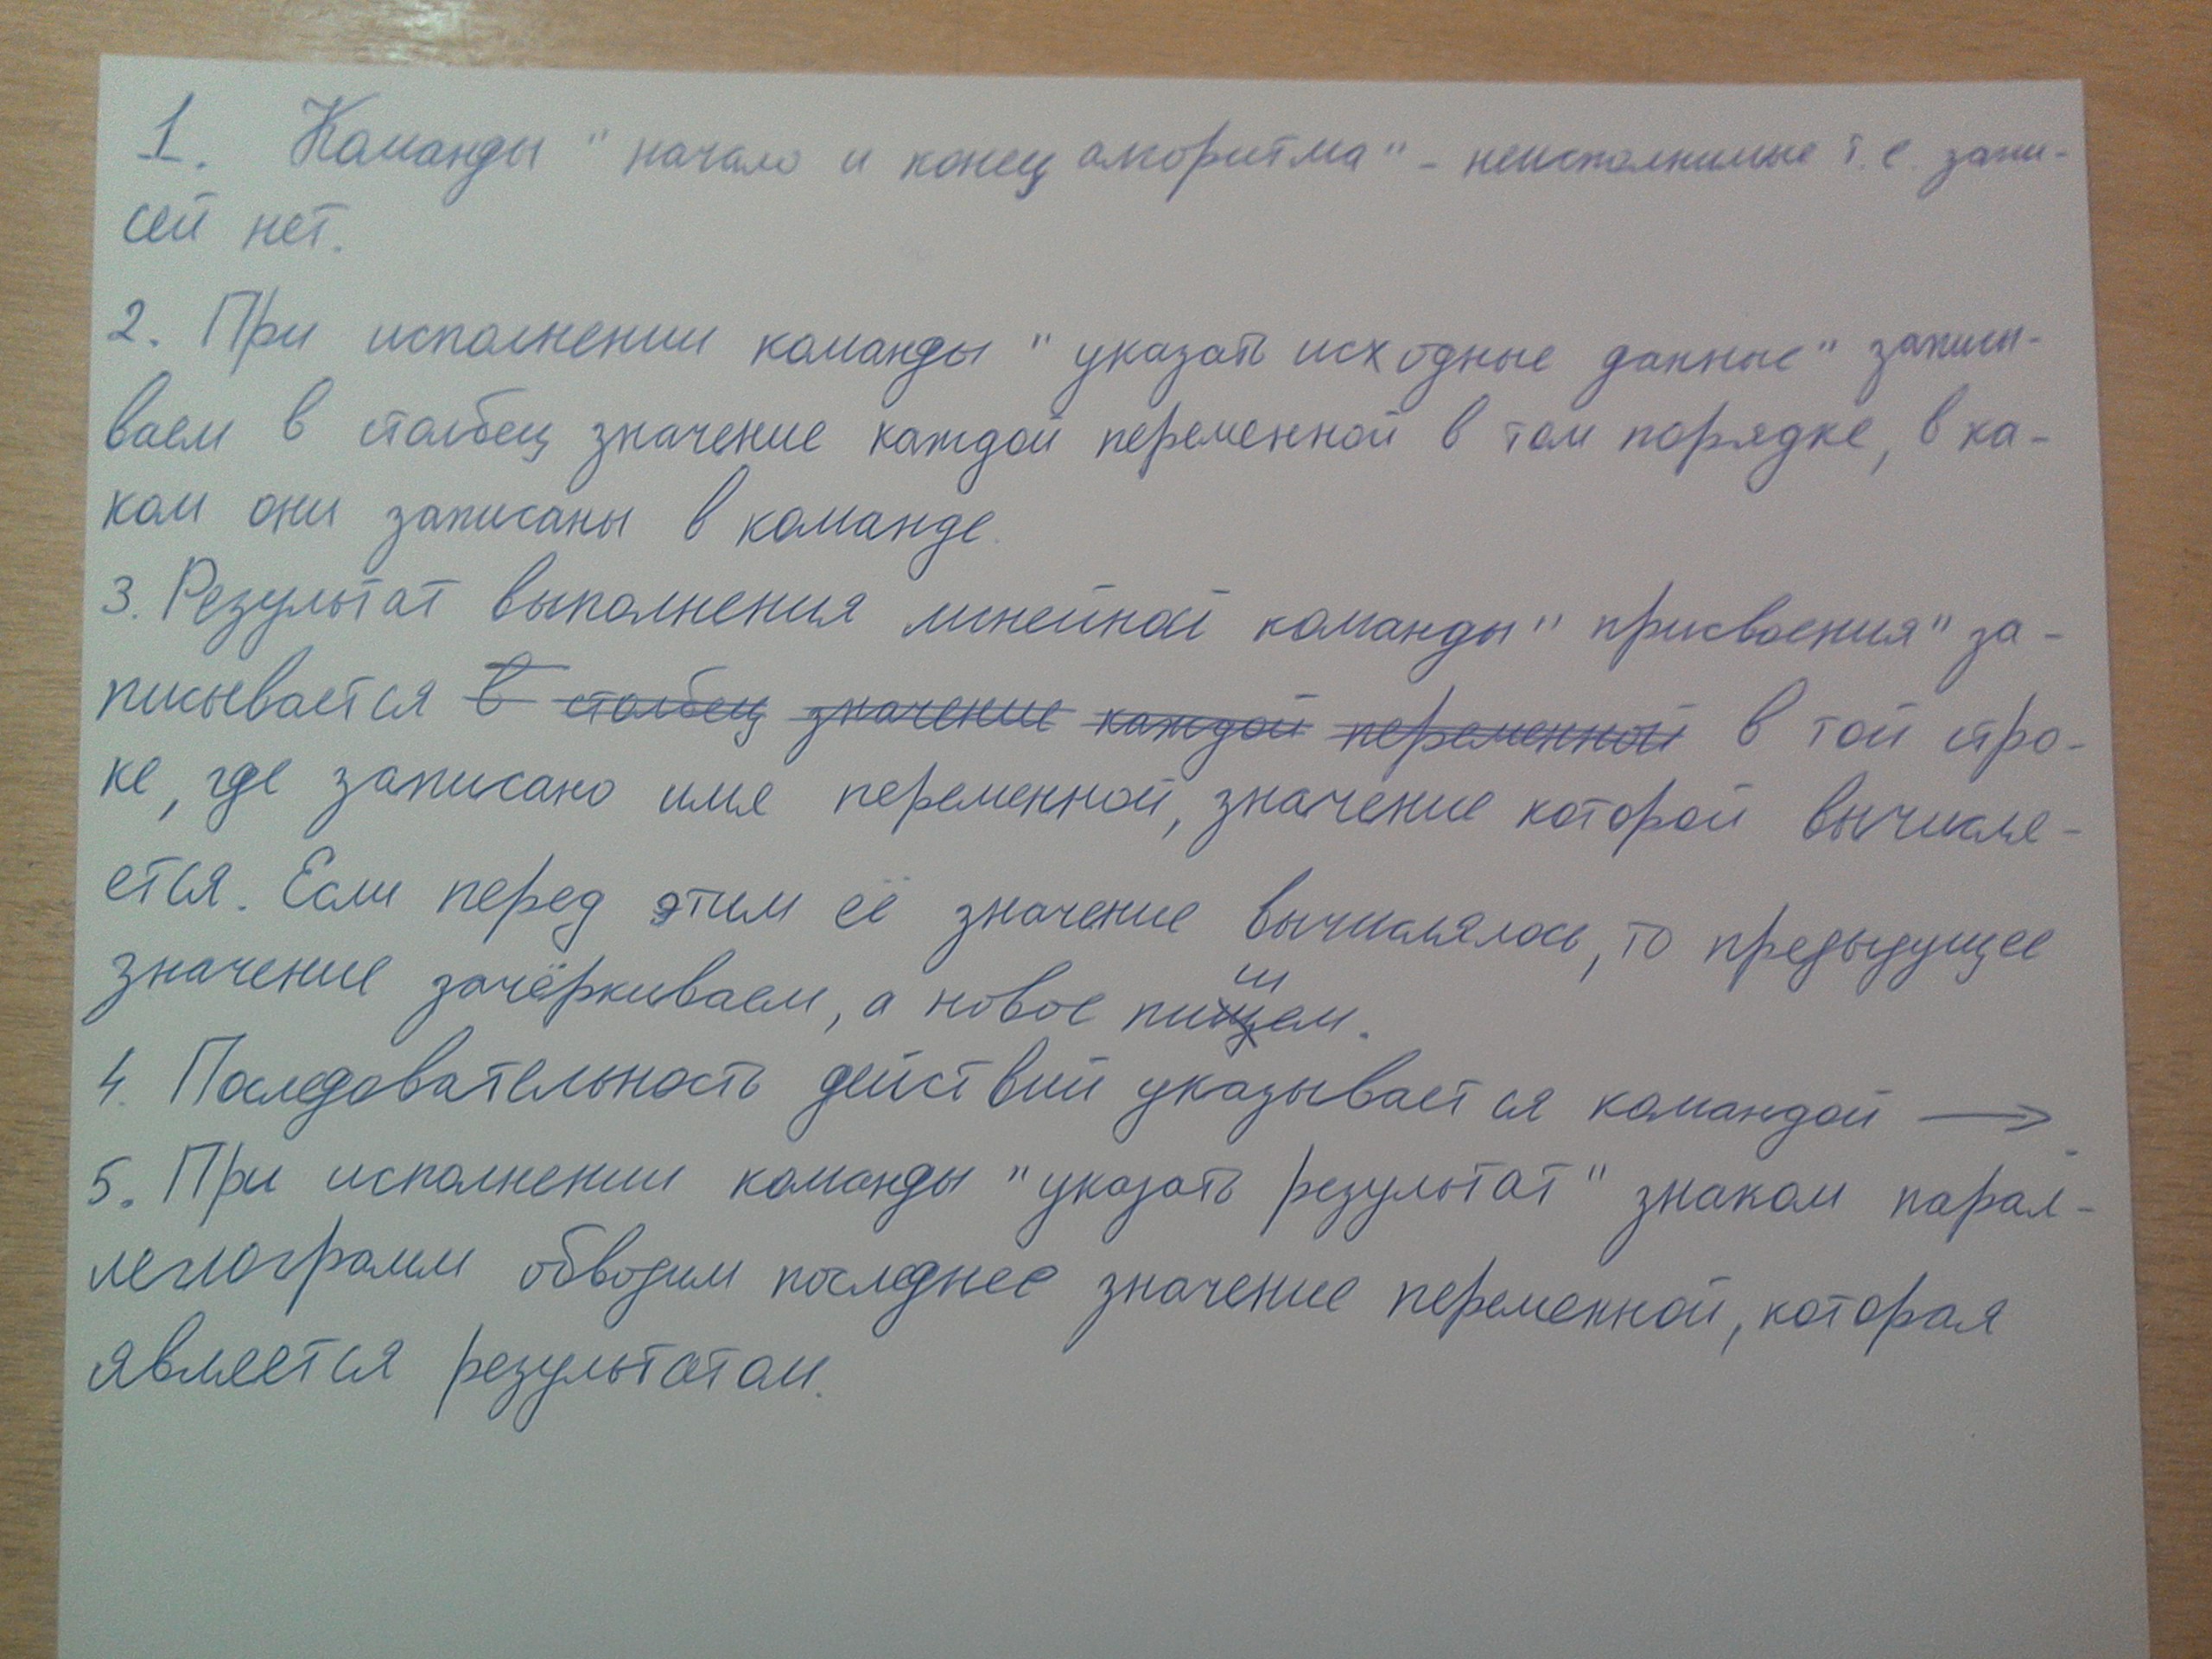 1. Команды "начало и конец алгоритма" - неисполнимые т.е. запи-
сей нет.
2. При исполнении команды "указать исходные данные" записы-
ваем в столбец значение каждой переменной в том порядке, в ка-
ком они записаны в команде.
3. Результат выполнения линейной команды "присвоения" за-
писывается в столбец значение каждой переменной в той стро-
ке, где записано имя переменной, значение которой вычисля-
ется. Если перед этим её значение вычислялось, то предыдущее
значение зачёркиваем, а новое пишем.
4. Последовательность действий указывается командой →.
5. При исполнении команды "указать результат" знаком парал-
лелограмм обводим последнее значение переменной, которая
является результатом.